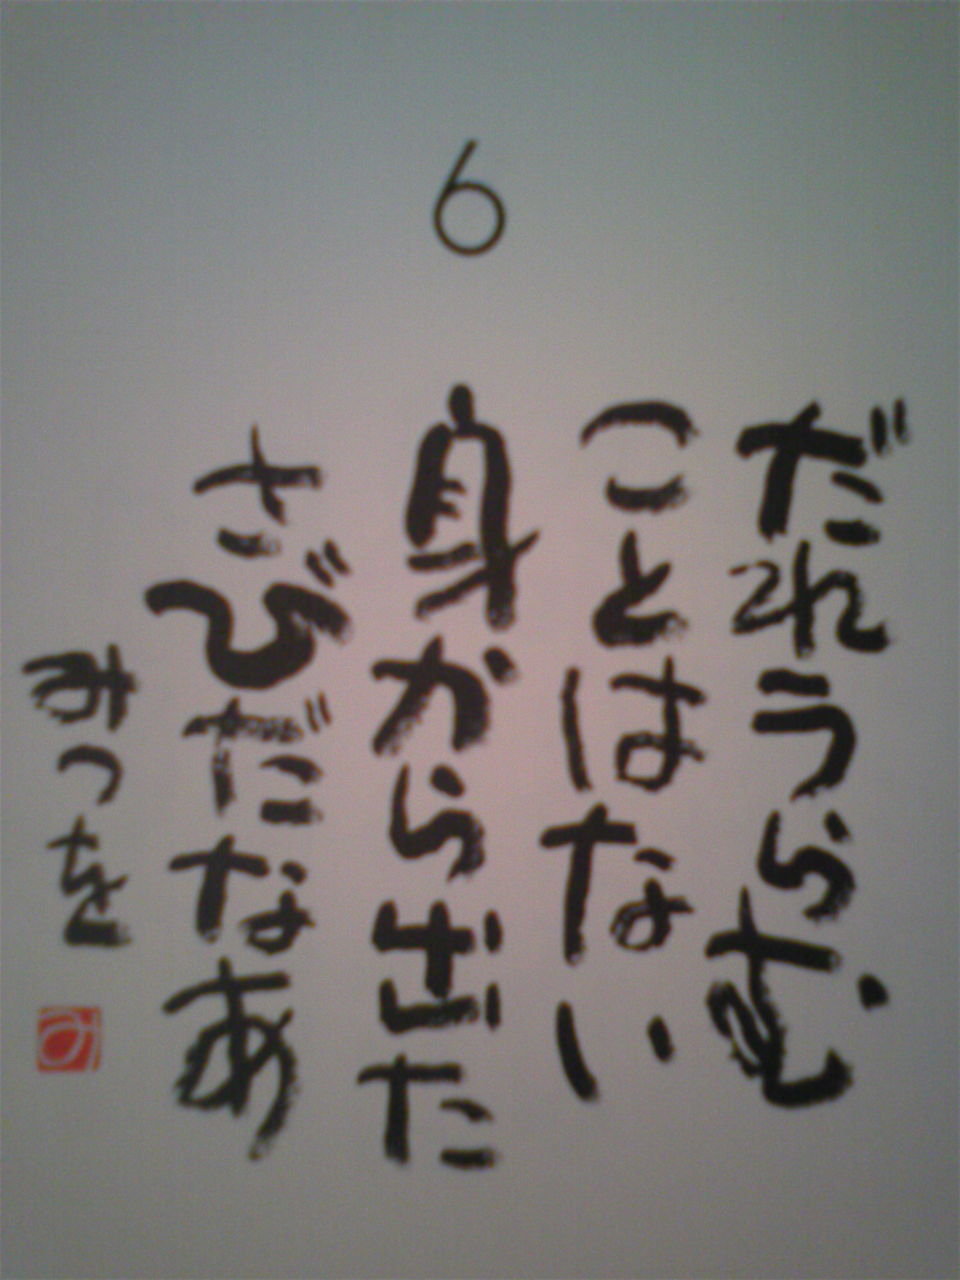 6
だれうらむ
ことはない
身から出た
さびだなあ
みつを
み